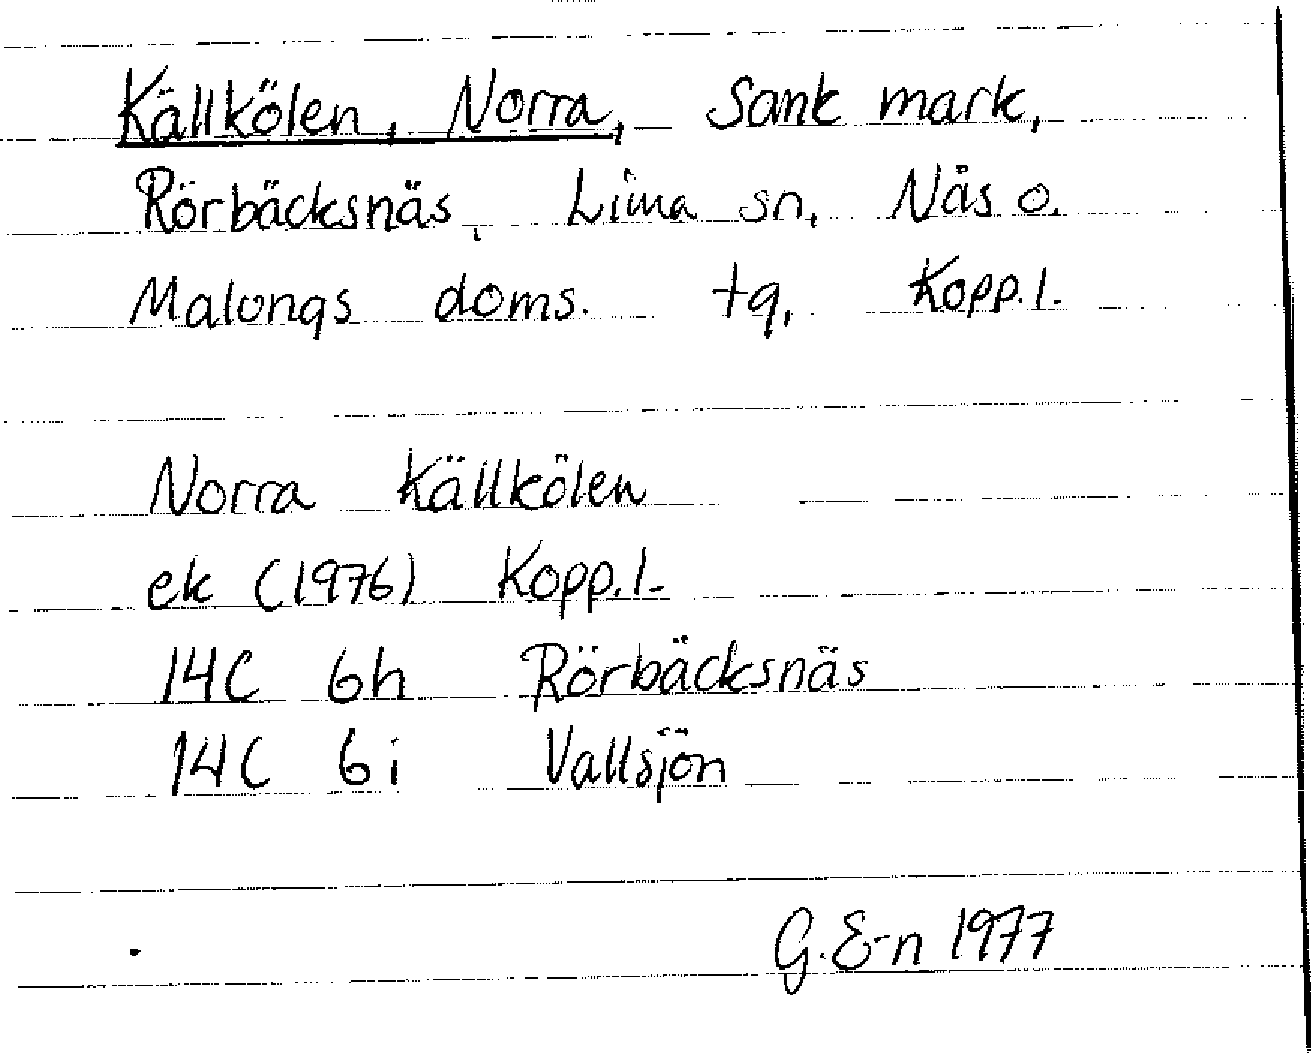 Källkölen, Norra, Sank mark,
Rörbäcksnäs, Lima sn, Nås o.
Malungs doms. tg, Kopp.l.
Norra Källkölen
ek (1976) Kopp.l.
14C 6h Rörbäcksnäs
14C 6i Vallsjön
G.E-n 1977